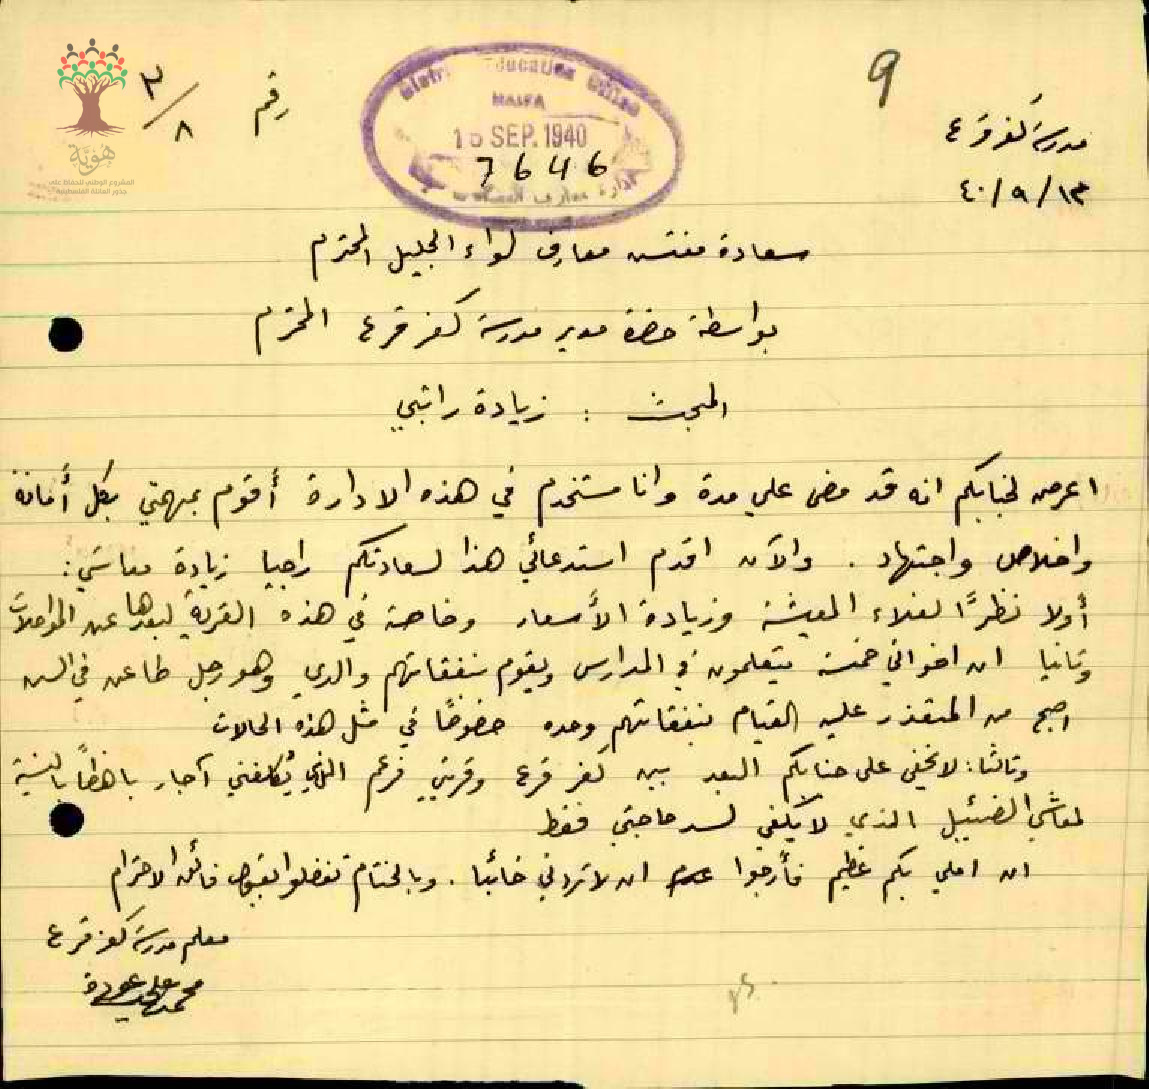 9
مدرسة كفر قرع
١٣/٩/٤٠
رقم ٨/٢
District Education Office
HAIFA
16 SEP. 1940
7646
ادارة معارف
هوية
المشروع الوطني للحفاظ على
جذور العائلة الفلسطينية
سعادة مفتش معارف لواء الجليل المحترم
بواسطة حضرة مدير مدرسة كفر قرع المحترم
المبحث : زيادة راتبي
اعرض لجنابكم انه قد مضى علي مدة وانا مستخدم في هذه الادارة أقوم بمهنتي بكل أمانة
واخلاص واجتهاد . والآن اقدم استدعائي هذا لسعادتكم راجيا زيادة معاشي :
أولا نظرًا لغلاء المعيشة وزيادة الأسعار وخاصة في هذه القرية لبعدها عن المواصلات
وثانيا ان اخواني خمسة يتعلمون في المدارس ويقوم بنفقاتهم والدي وهو رجل طاعن في السن
اصبح من المتعذر عليه القيام بنفقاتهم وحده خصوصًا في مثل هذه الحالات
وثالثا : لا يخفى على جنابكم البعد بين كفر قرع وقريتي فرعم الذي يكلفني آجار باهظًا بالنسبة
لمعاشي الضئيل الذي لا يكفي لسد حاجتي فقط
ان املي بكم عظيم فأرجوا ان لا تردني خائبا . وبالختام تفضلوا بقبول فائق الاحترام
معلم مدرسة كفر قرع
محمد